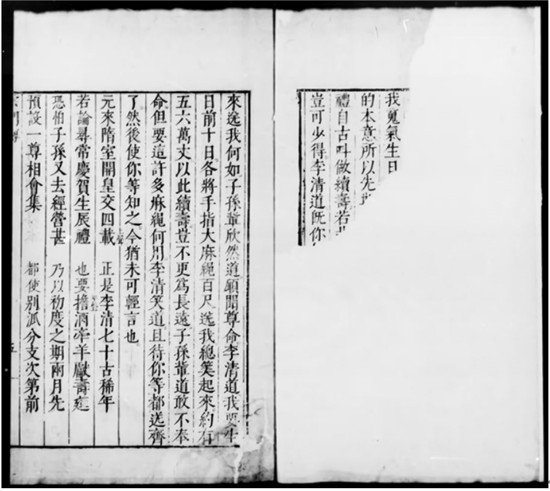 我蒐氣生日
的本意所以先
禮自古叫做續壽若
豈可少得李清道既你
來送我何如子孫輩欣然道願聞尊命李清道我生
日前十日各將手指大麻繩百尺送我總筭起來約有
五六萬丈以此續壽豈不更爲長遠子孫輩道敢不奉
命但要這許多麻繩何用李清笑道且待你等都送齊
了然後使你等知之今猶未可輕言也
元來隋室開皇交四載　正是李清七十古稀年
若論尋常慶賀生辰禮　也要擔酒牽羊獻壽筵
恐怕子孫又去經營甚　乃以初度之期兩月先
預設一尊相會集　都使別派分支次第前